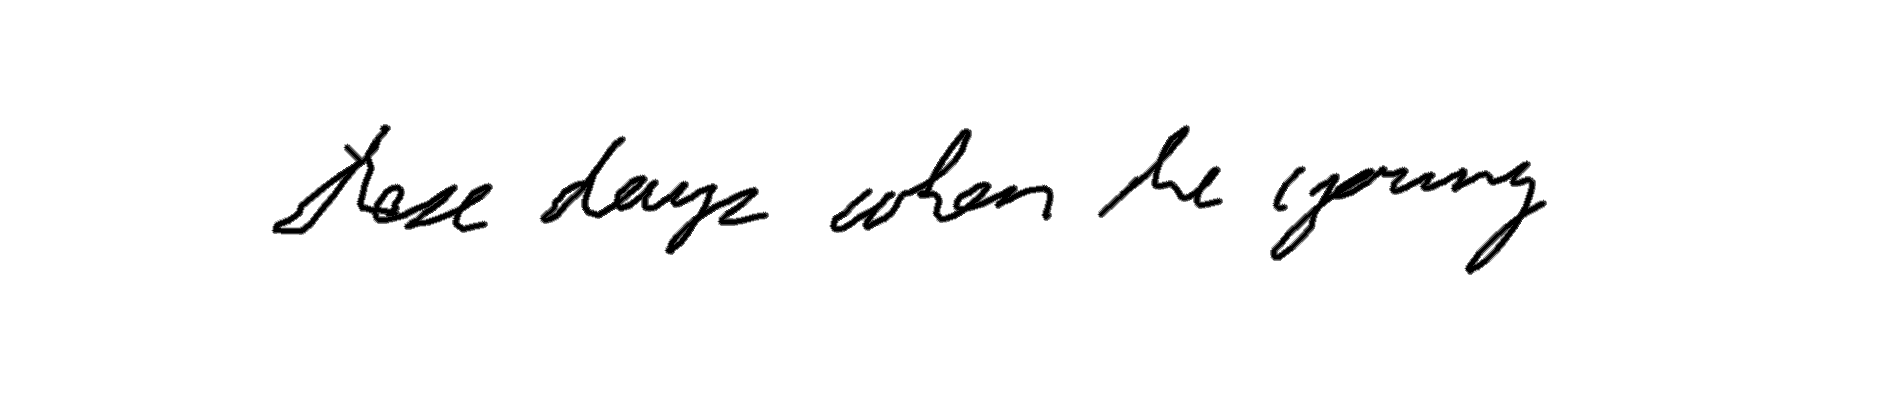 these days when he young